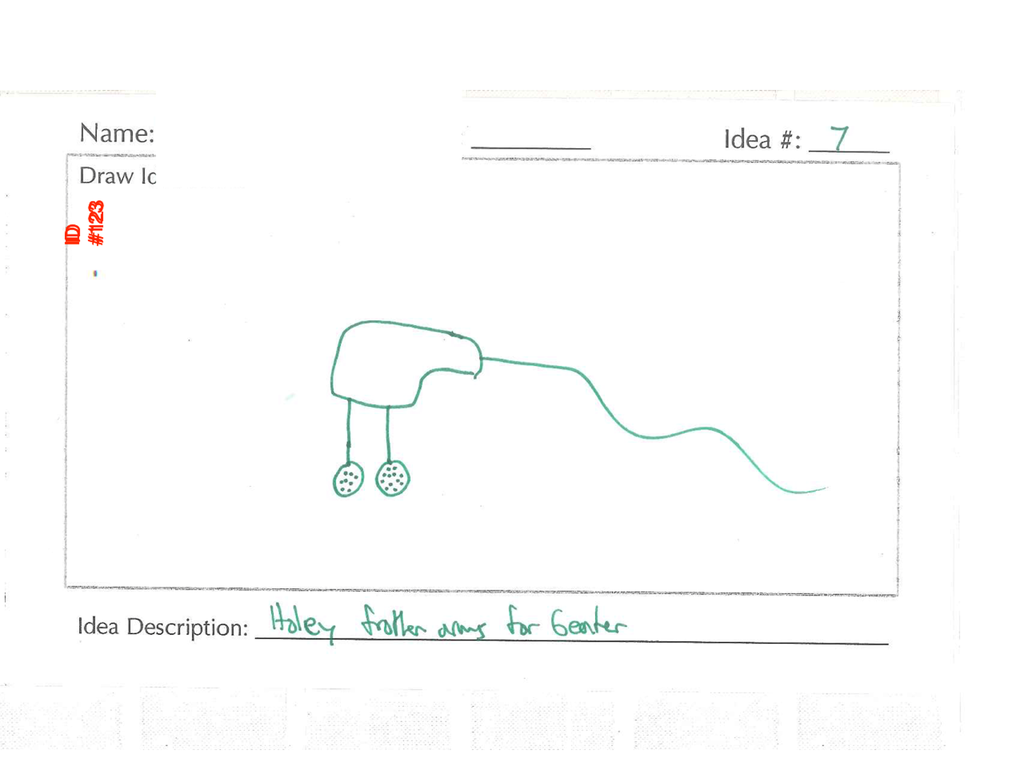 Name:
Idea #: 7
Draw Id
ID #123
Idea Description: Holey frother arms for beater